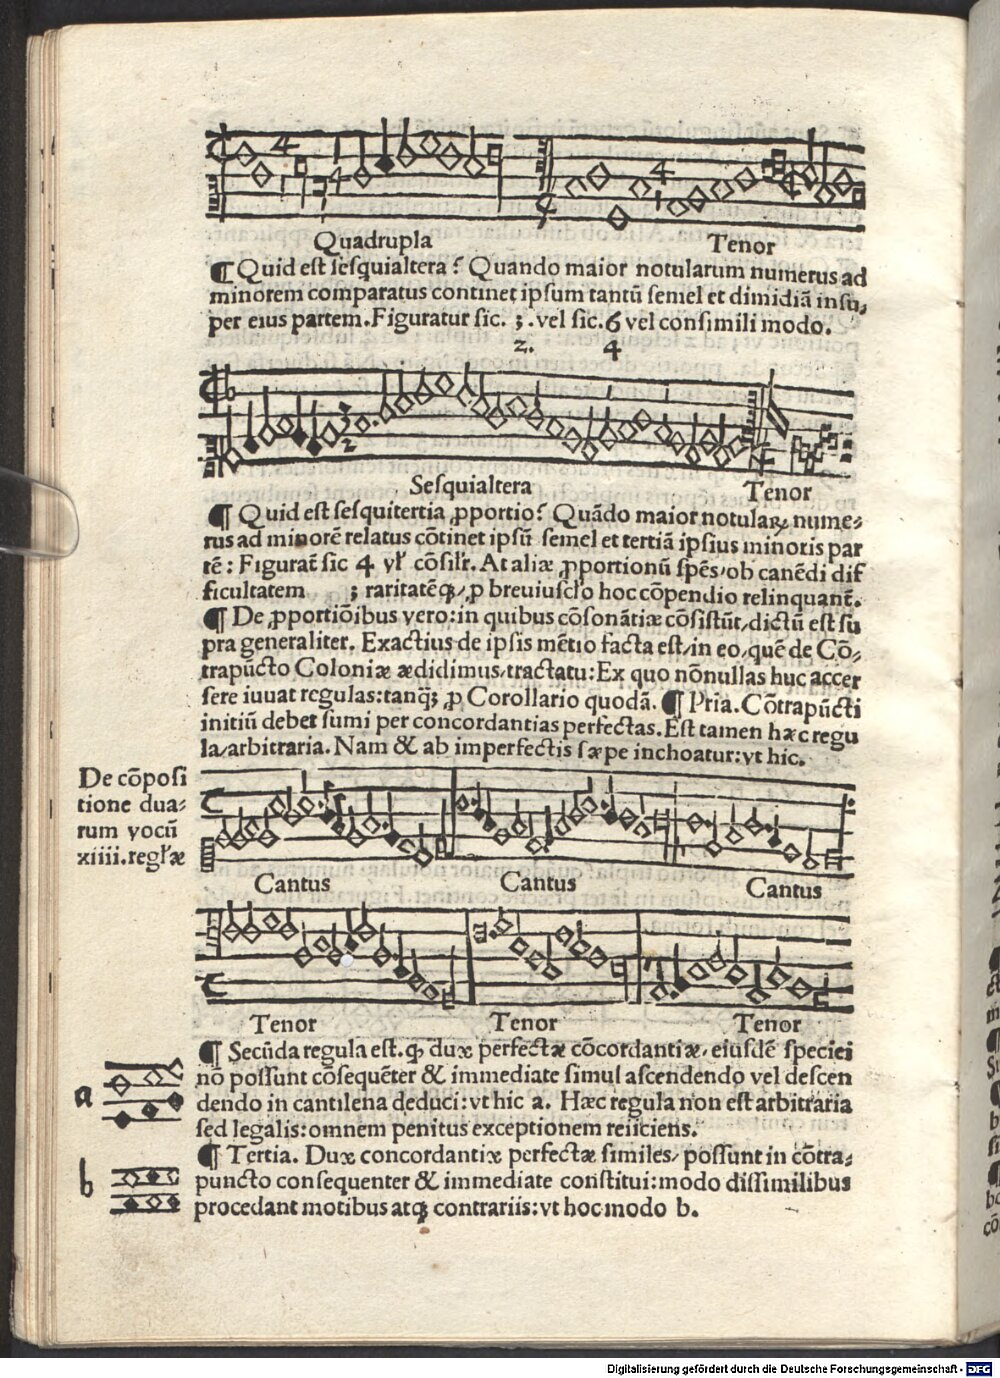 Quadrupla Tenor
¶ Quid est sesquialtera? Quando maior notularum numerus ad
minorem comparatus continet ipsum tantū semel et dimidiā insu⸗
per eius partem. Figuratur sic. 3 .vel sic. 6 vel consimili modo.
2. 4
Sesquialtera Tenor
¶ Quid est sesquitertia ꝓportio? Quādo maior notulaꝝ nume⸗
rus ad minorē relatus cōtinet ipsū semel et tertiā ipsius minoris par
tē: Figurat̄ sic 4 vł cōsilr̄. At aliæ ꝓportionū spēs/ob canēdi dif
ficultatem 3 raritatēqꝫ/ꝓ breviusclo hoc cōpendio relinquant̄.
¶ De ꝓportiōibus vero: in quibus cōsonātiæ cōsistūt/dictū est su
pra generaliter. Exactius de ipsis mētio facta est/in eo/quē de Cō⸗
trapūcto Coloniæ ædidimus/tractatu: Ex quo nōnullas huc accer
sere iuuat regulas: tanqꝫ ꝓ Corollario quodā. ¶ Pria. Cōtrapūcti
initiū debet sumi per concordantias perfectas. Est tamen hæc regu
la/arbitraria. Nam & ab imperfectis sæpe inchoatur: vt hic.
De cōposi
tione dua⸗
rum vocū
xiiii. regłæ
Cantus Cantus Cantus
Tenor Tenor Tenor
¶ Secūda regula est. ꝙ duæ perfectæ cōcordantiæ/ eiusdē speciei
nō possunt cōsequēter & immediate simul ascendendo vel descen
dendo in cantilena deduci: vt hic a. Hæc regula non est arbitraria
sed legalis: omnem penitus exceptionem reiiciens.
a
¶ Tertia. Duæ concordantiæ perfectæ similes/ possunt in cōtra⸗
puncto consequenter & immediate constitui: modo dissimilibus
procedant motibus atqꝫ contrariis: vt hoc modo b.
b
Digitalisierung gefördert durch die Deutsche Forschungsgemeinschaft - DFG